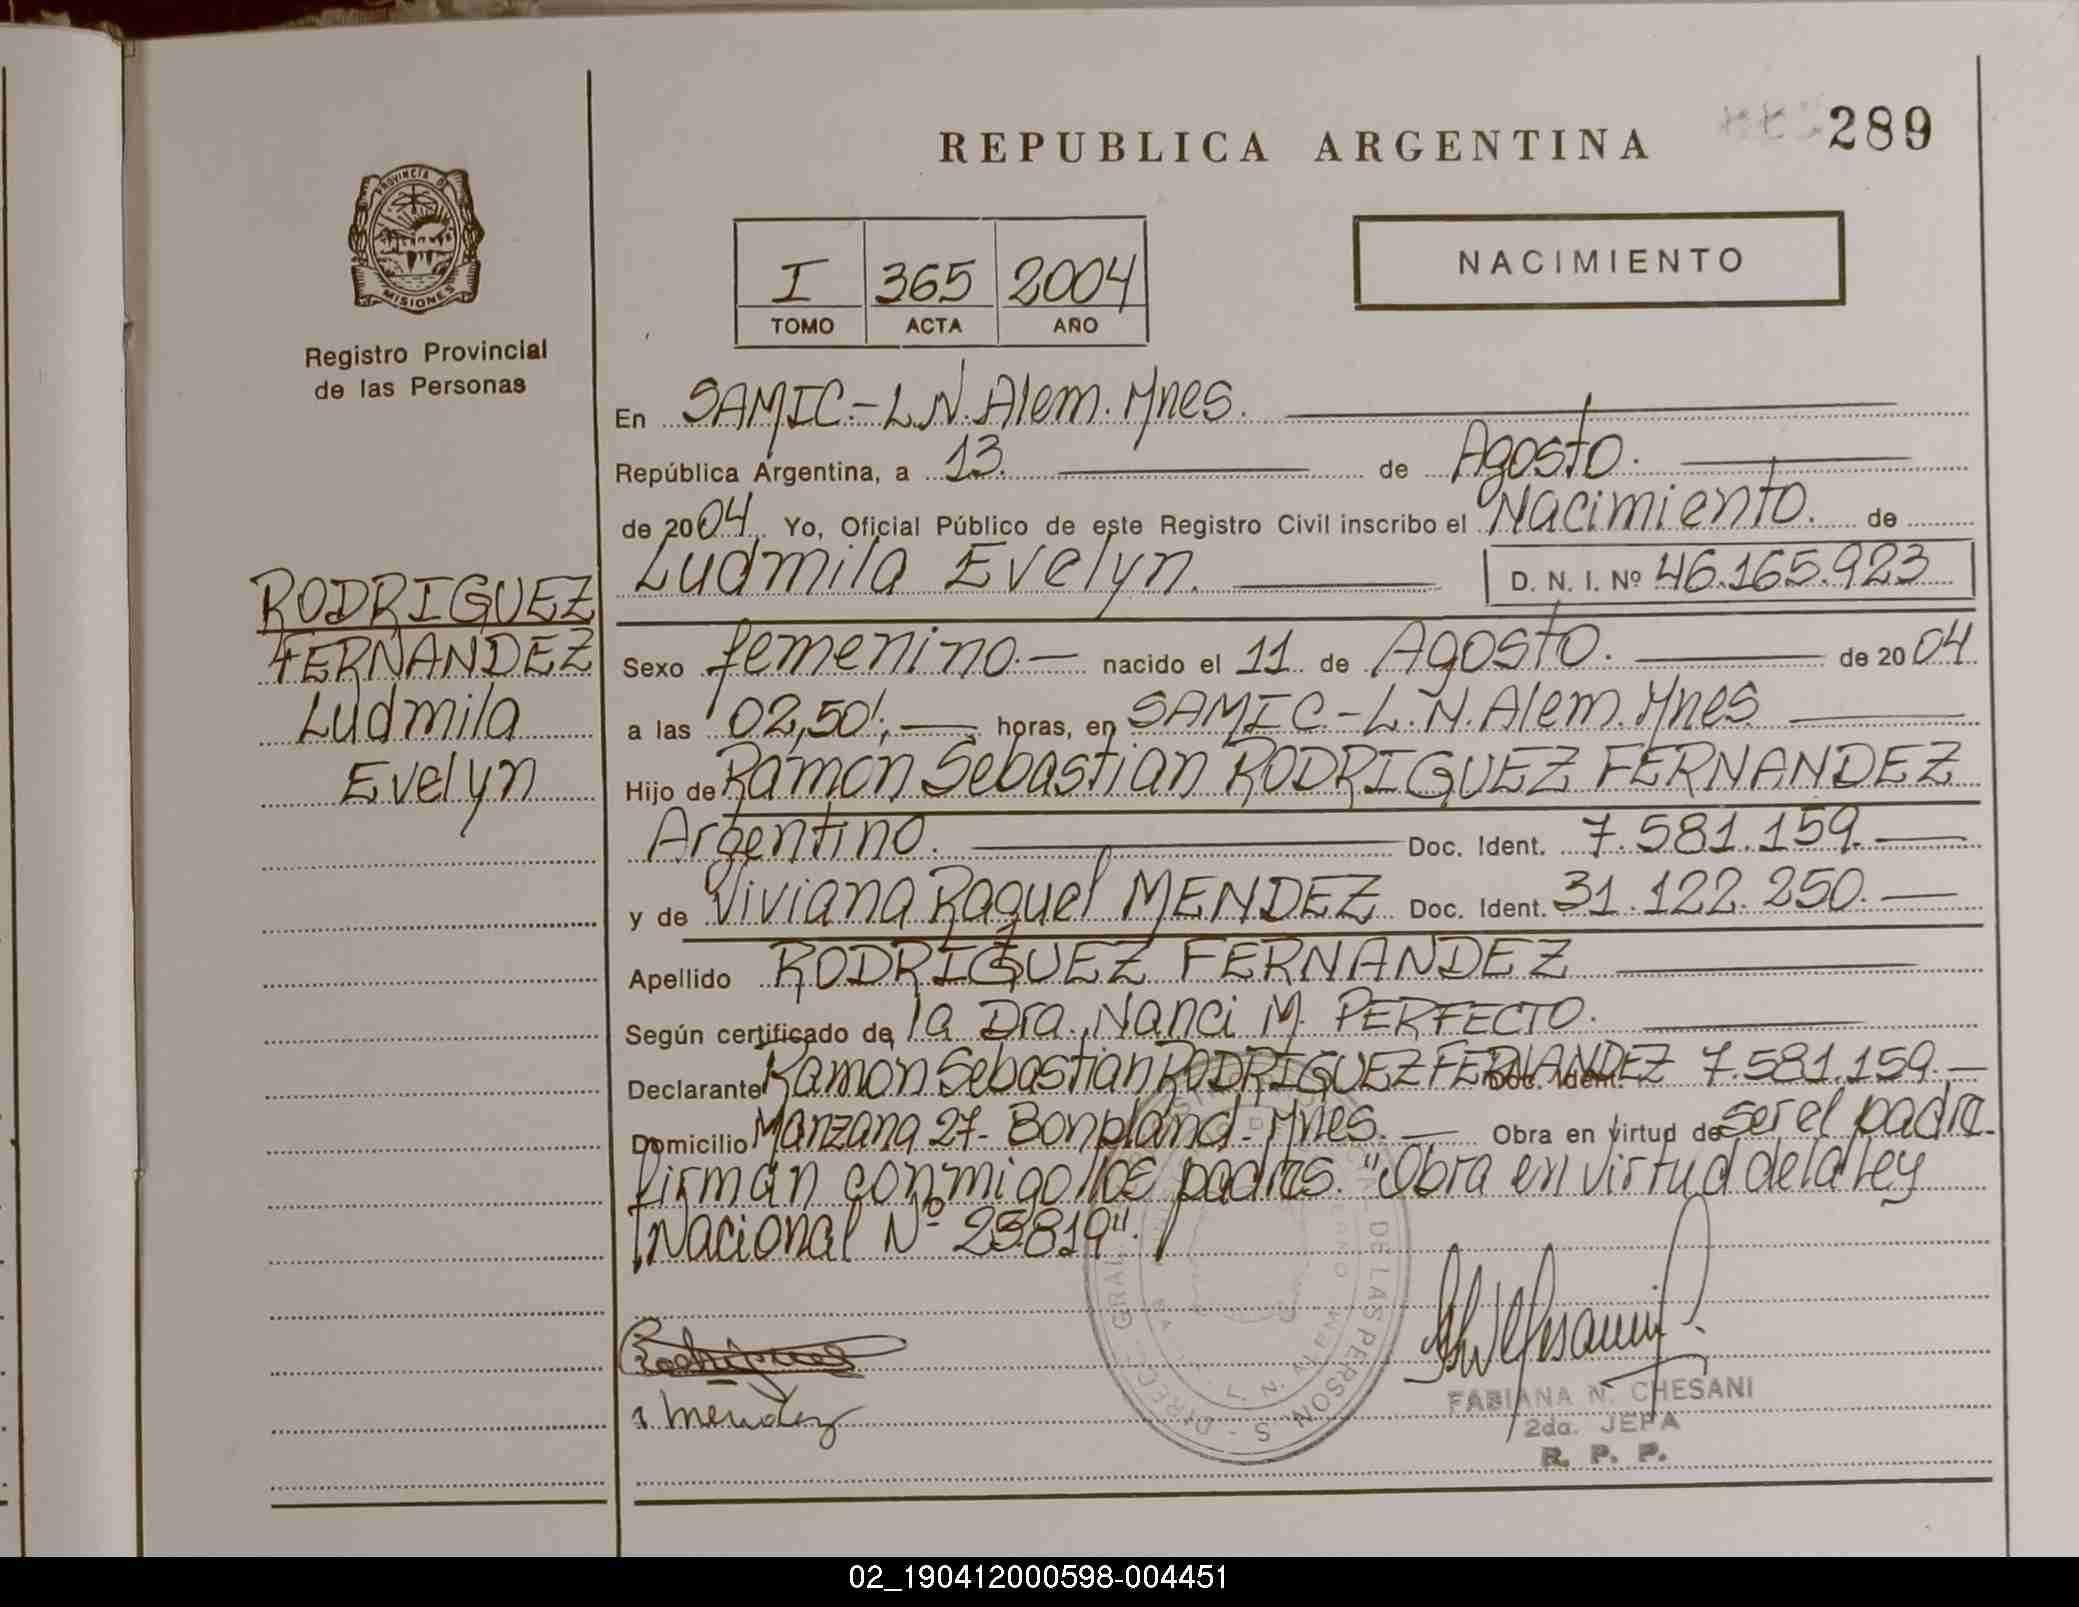 REPUBLICA ARGENTINA
289
PROVINCIA DE
MISIONES
Registro Provincial
de las Personas
I 365 2004
TOMO ACTA AÑO
NACIMIENTO
En SAMIC.-L.N.Alem.Mnes.
República Argentina, a 13. de Agosto.
de 2004 Yo, Oficial Público de este Registro Civil inscribo el Nacimiento. de
Ludmila Evelyn. D. N. I. Nº 46.165.923
RODRIGUEZ
FERNANDEZ
Ludmila
Evelyn
Sexo femenino.- nacido el 11 de Agosto. de 2004
a las 02,50'; horas, en SAMIC-L.N.Alem.Mnes
Hijo de Ramón Sebastián RODRIGUEZ FERNANDEZ
Argentino. Doc. Ident. 7.581.159.-
y de Viviana Raquel MENDEZ Doc. Ident. 31.122.250.-
Apellido RODRIGUEZ FERNANDEZ
Según certificado de la Dra. Nanci M. PERFECTO.
Declarante Ramón Sebastián RODRIGUEZ FERNANDEZ Doc. Ident. 7.581.159.-
Domicilio Manzana 27- Bonpland- Mnes. - Obra en virtud de ser el padre.
firman conmigo los padres. "Obra en virtud de la Ley
Nacional Nº 25819".
Rodriguez
Mendez
FABIANA N. CHESANI
2da. JEFA
R. P. P.
02_190412000598-004451